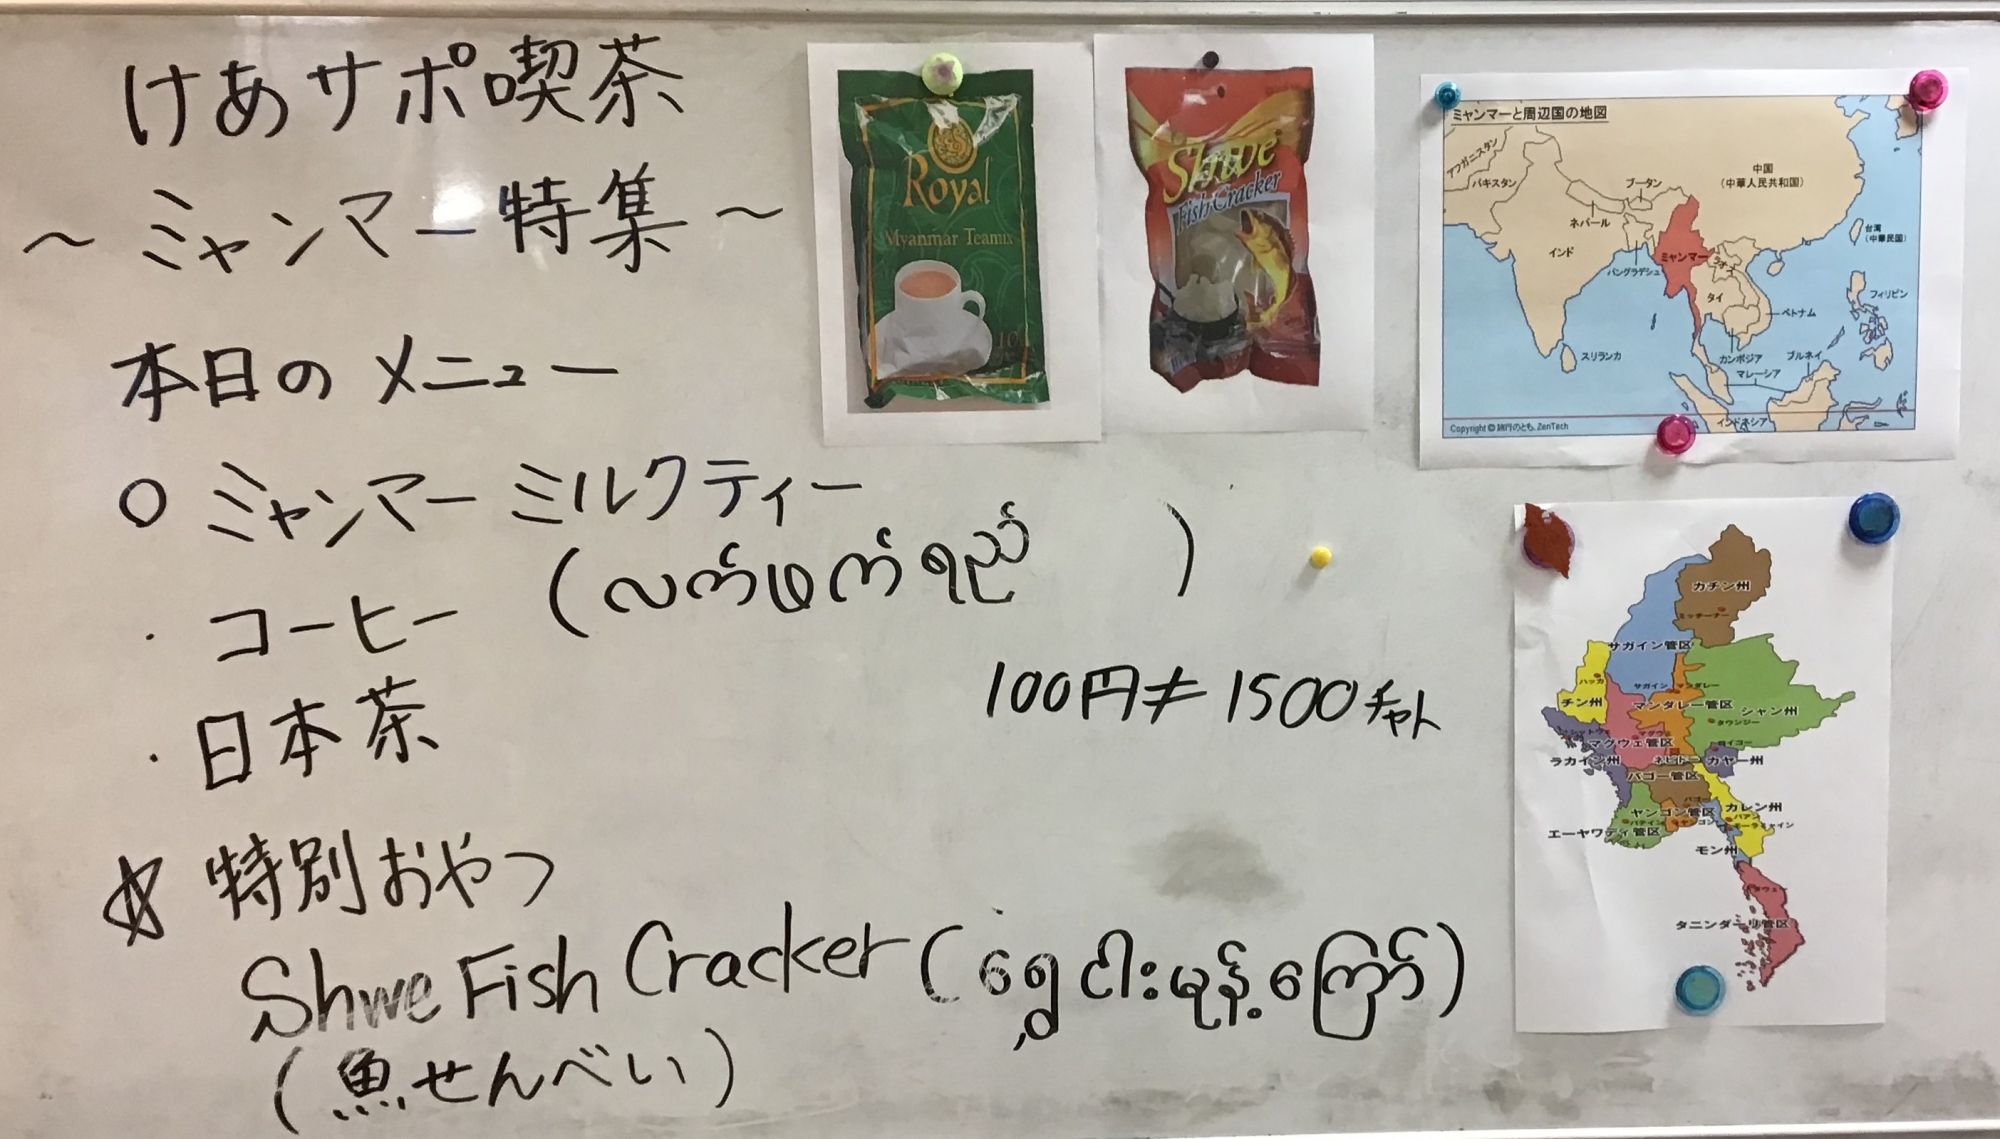 けあサポ喫茶
～ミャンマー特集～
本日のメニュー
○ ミャンマーミルクティー
(လက်ဖက်ရည်)
・コーヒー
・日本茶
100円≠1500チャト
☆ 特別おやつ
Shwe Fish Cracker (ရွှေငါးမုန့်ကြော်)
(魚せんべい)
Royal
Myanmar Teamix
Shwe
Fish Cracker
ミャンマーと周辺国の地図
アフガニスタン
パキスタン
中国
(中華人民共和国)
ブータン
ネパール
インド
バングラデシュ
ミャンマー
ラオス
台湾
(中華民国)
タイ
フィリピン
ベトナム
スリランカ
カンボジア
ブルネイ
マレーシア
インドネシア
Copyright © 旅行のとも、ZenTech
カチン州
ミッチーナー
サガイン管区
ハッカ
サガイン
マンダレー
チン州
マンダレー管区
シャン州
タウンジー
シットウェ
マグウェ
マグウェ管区
ロイコー
ラカイン州
ネピドー
カヤー州
バゴー管区
バゴー
カレン州
ヤンゴン管区
パアン
パテイン
ヤンゴン
モーラミャイン
エーヤワディ管区
モン州
ダウェー
タニンダーリ管区